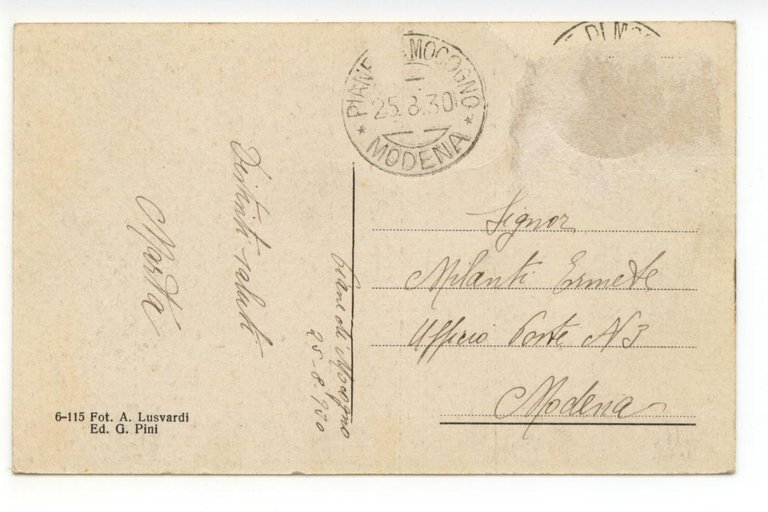 PIANE DI MOCOGNO
25.8.30
* MODENA *
DI MO
Distinti saluti
Marta
Piane di Mocogno
25-8-930
Signor
Milanti Ermete
Ufficio Poste N 3
Modena
6-115 Fot. A. Lusvardi
Ed. G. Pini